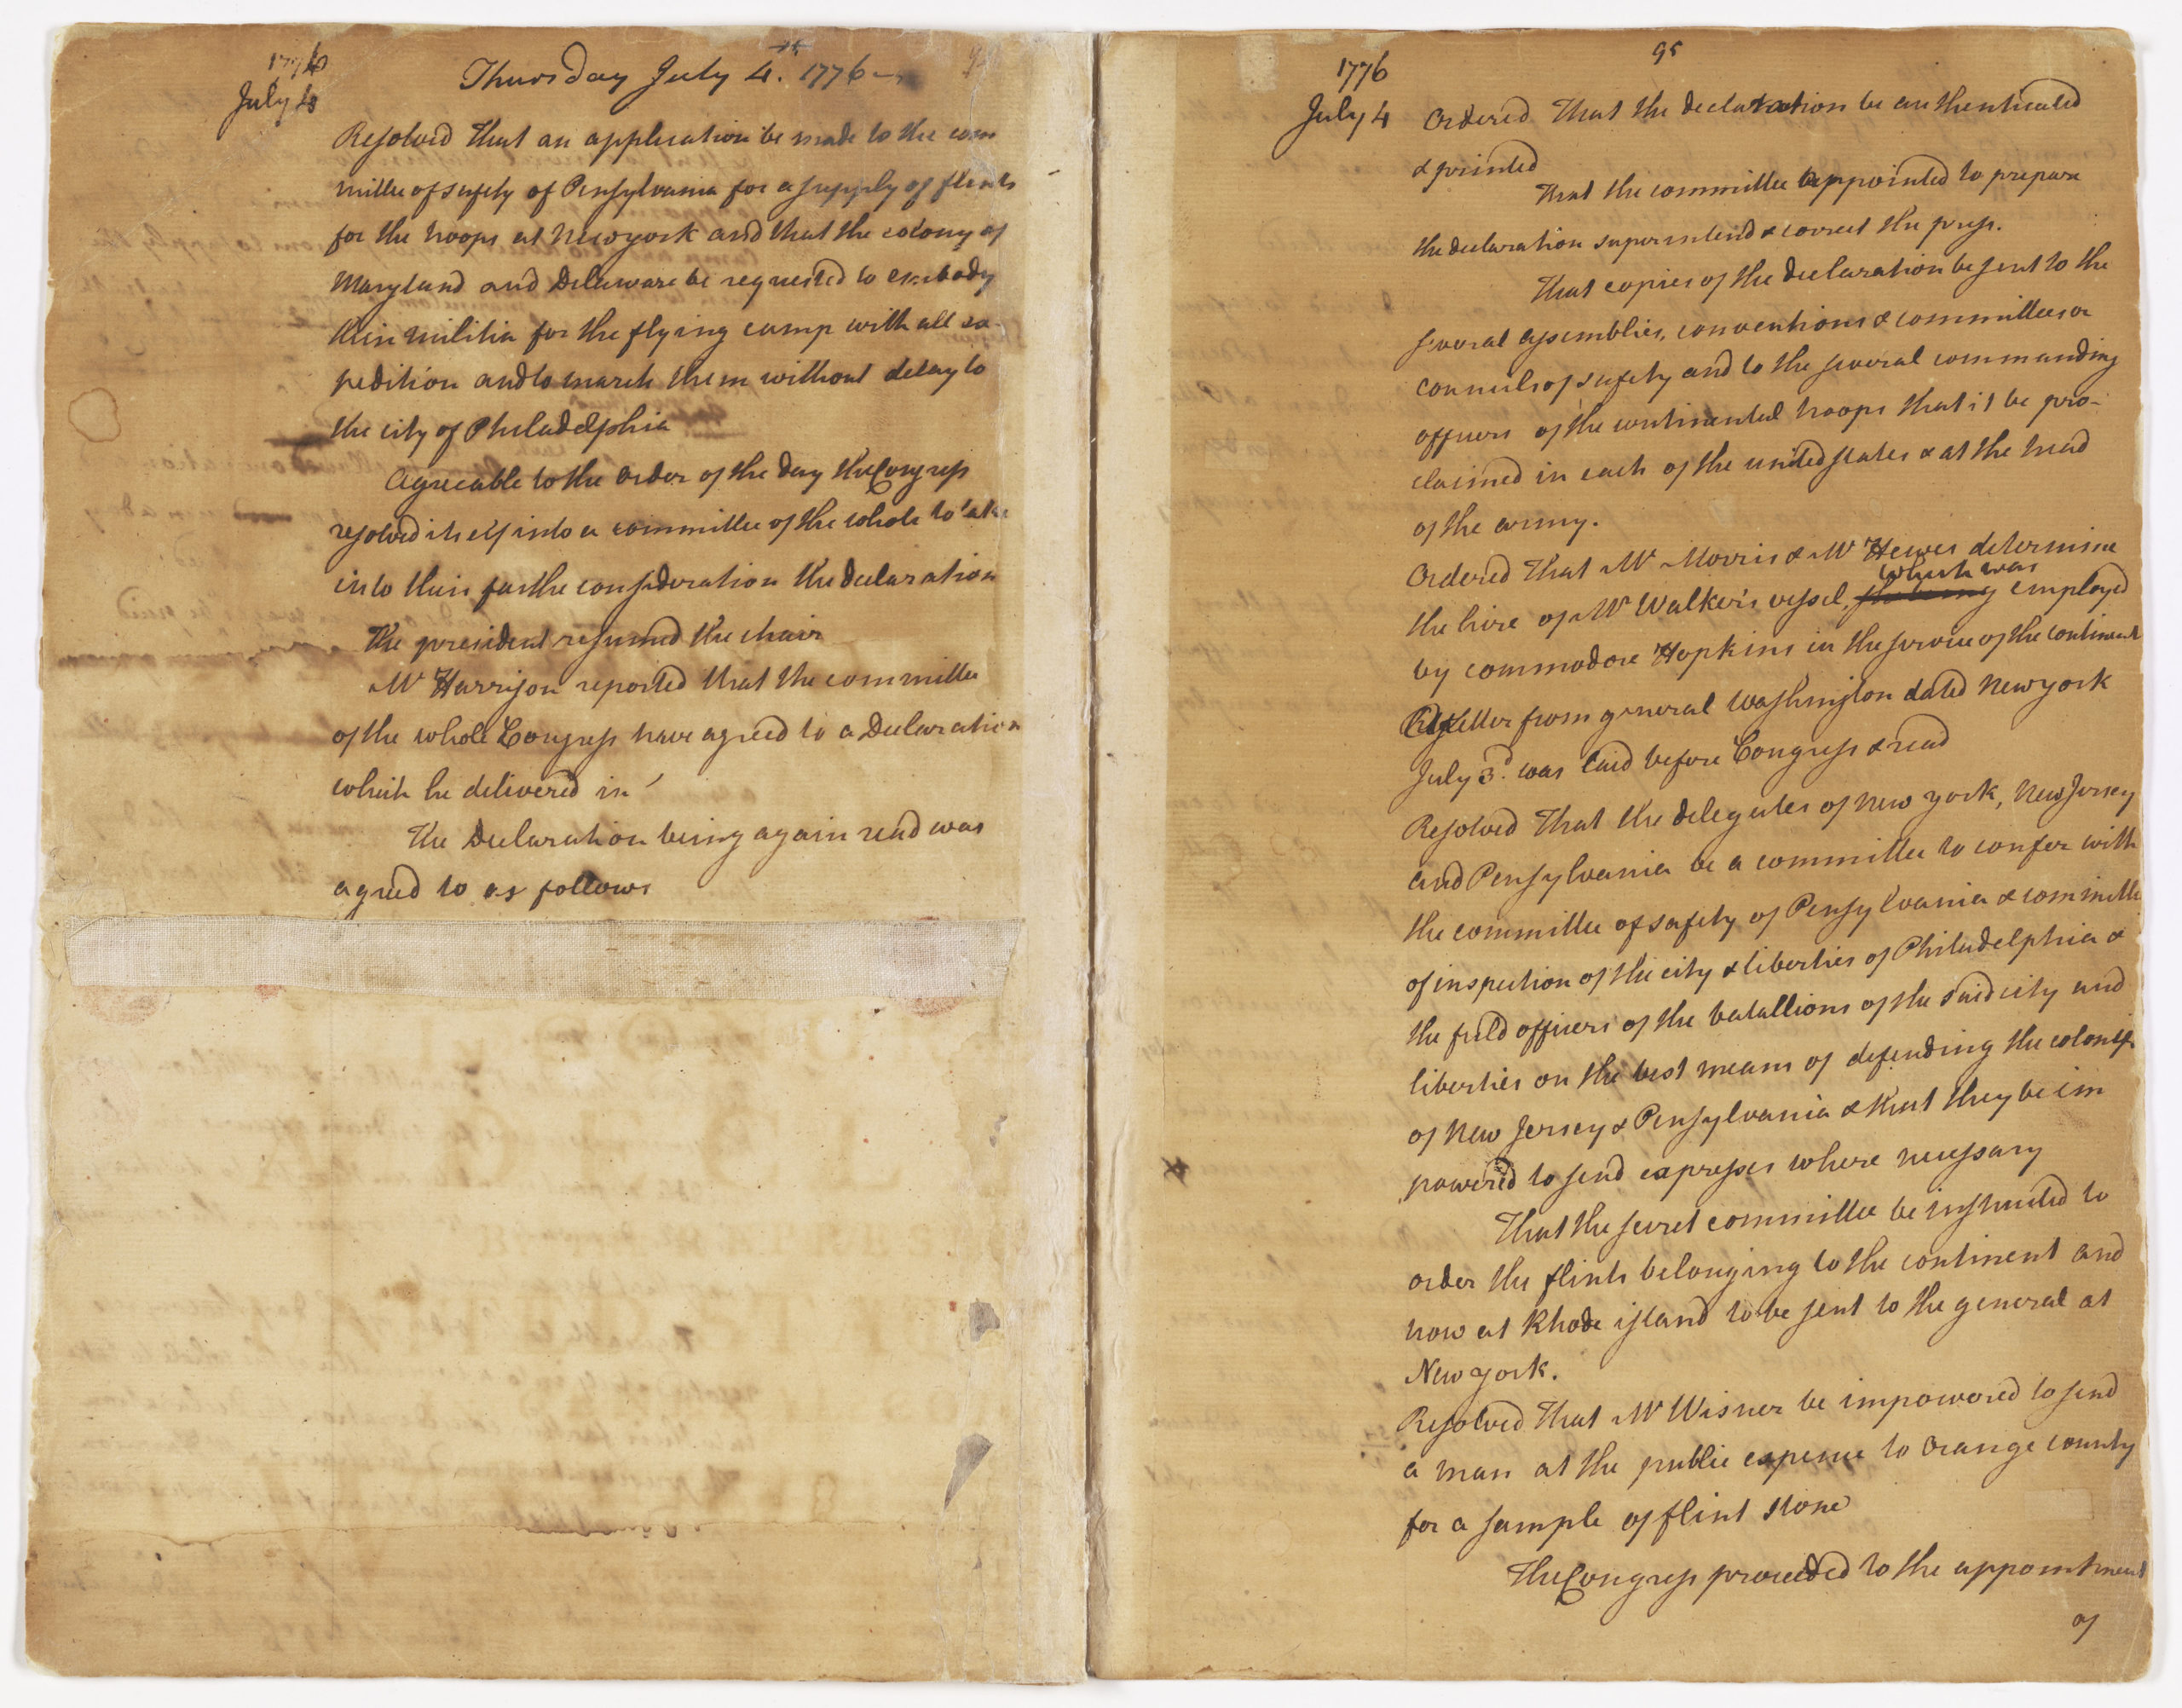 1776
July 4
Thursday July 4. 1776
Resolved that an application be made to the com
mittee of safety of Pensylvania for a supply of flints
for the troops at New york and that the colony of
Maryland and Delaware be requested to embody
their militia for the flying camp with all ex-
pedition and to march them without delay to
the city of Philadelphia
Agreeable to the order of the day the Congress
resolved itself into a committee of the whole to take
into their farther consideration the declaration
The president resumed the chair
Mr Harrison reported that the committee
of the whole Congress have agreed to a Declaration
which he delivered in
The Declaration being again read was
agreed to as follows
95
1776
July 4
Ordered That the declaration be authenticated
& printed
That the committee appointed to prepare
the declaration superintend & correct the press.
That copies of the declaration be sent to the
several assemblies, conventions & committees or
councils of safety and to the several commanding
officers of the continental troops that it be pro-
claimed in each of the united states & at the head
of the army.
Ordered That Mr Morris & Mr Hewes determine
which was
the hire of Mr Walker's vessel, employed
by commodore Hopkins in the service of the continent
A letter from general Washington dated New york
July 3d. was laid before Congress & read
Resolved That the delegates of New york, New Jersey
and Pensylvania be a committee to confer with
the committee of safety of Pensylvania & committee
of inspection of the city & liberties of Philadelphia &
the field officers of the batallions of the said city and
liberties on the best means of defending the colonies
of New Jersey & Pensylvania & that they be im
powered to send expresses where necessary
That the secret committee be instructed to
order the flints belonging to the continent and
now at Rhode island to be sent to the general at
New york.
Resolved That Mr Wisner be impowered to send
a man at the public expence to Orange county
for a sample of flint stone
The Congress proceeded to the appointment
of